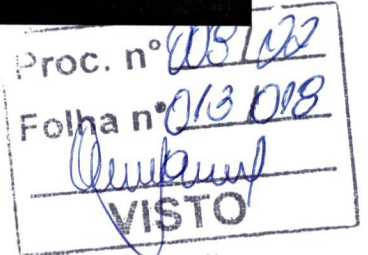 Proc. nº 003/22
Folha nº 013 018
VISTO